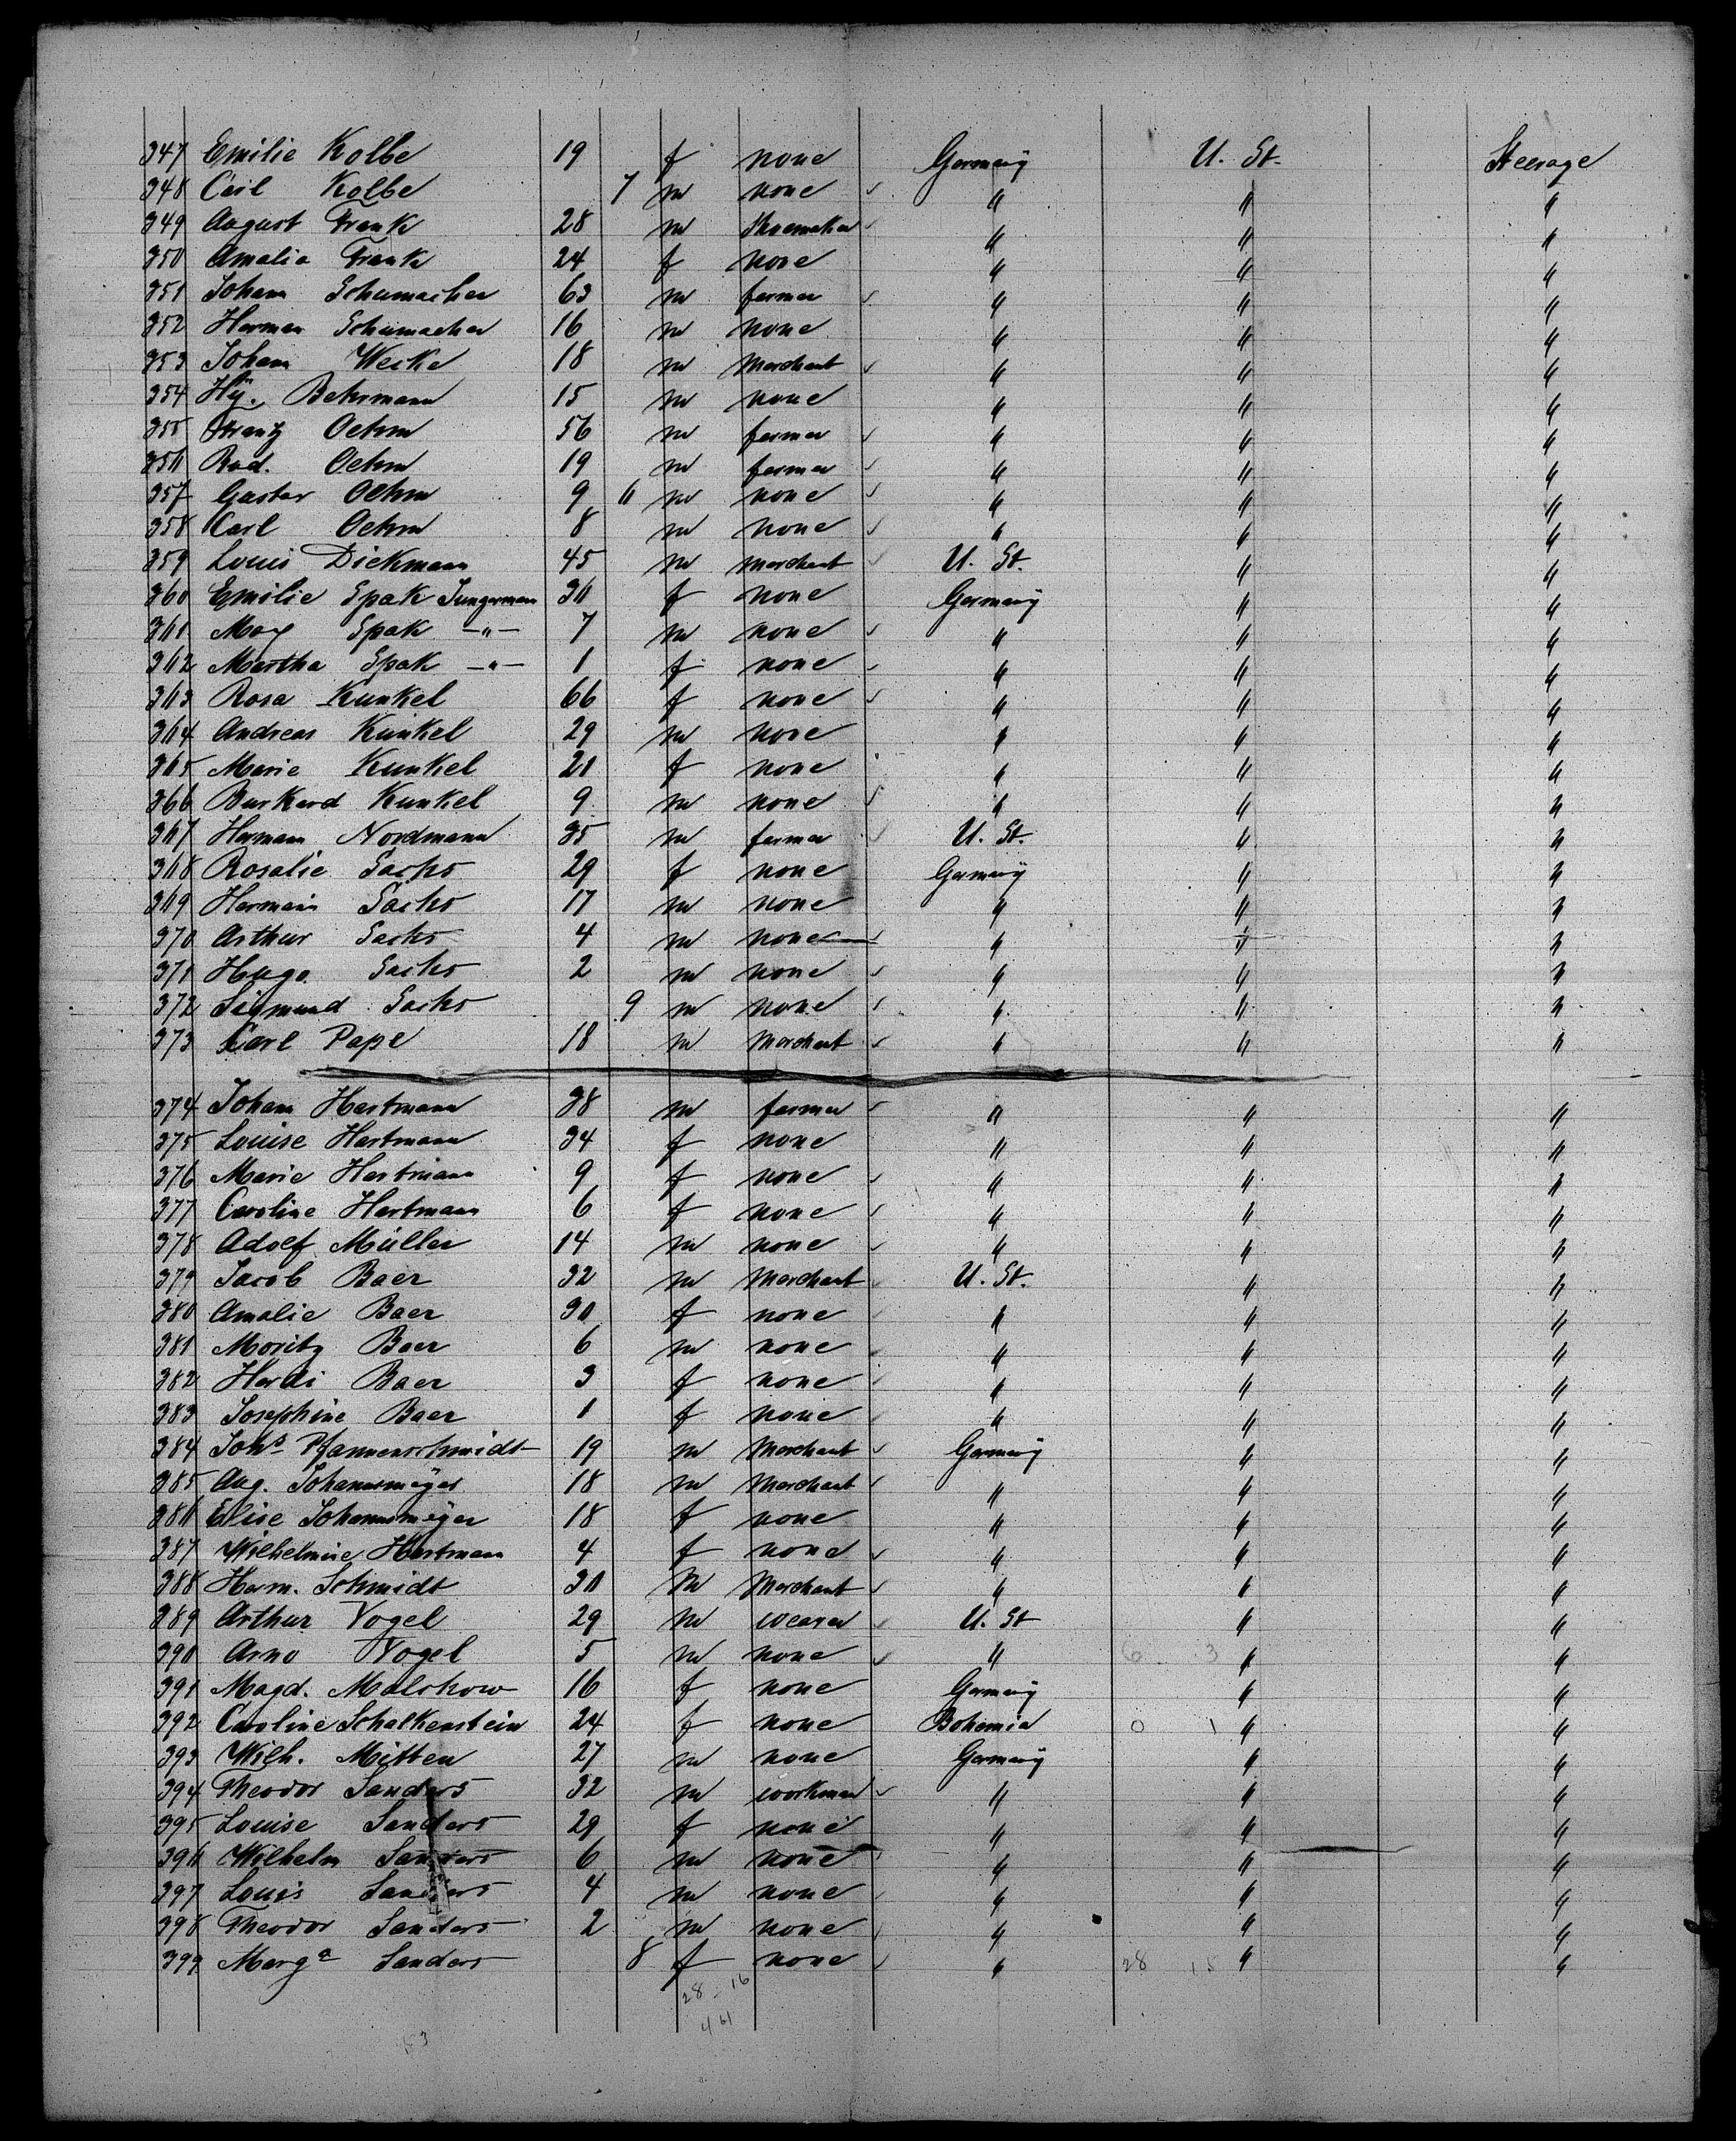 347 Emilie Kolbe 19 f none Germany U. St. Steerage
348 Carl Kolbe 7 m none " " "
349 August Frank 28 m Shoemaker " " "
350 Amalia Frank 24 f none " " "
351 Johann Schumacher 63 m farmer " " "
352 Herman Schumacher 16 m none " " "
353 Johann Weike 18 m Merchant " " "
354 Hÿ. Behrmann 15 m none " " "
355 Frantz Oehm 56 m farmer " " "
356 Rud. Oehm 19 m farmer " " "
357 Gustav Oehm 9 6 m none " " "
358 Carl Oehm 8 m none " " "
359 Louis Dickmann 45 m merchant U. St. " "
360 Emilie Spak Jungermann 30 f none Germany " "
361 Max Spak —"— 7 m none " " "
362 Martha Spak —"— 1 f none " " "
363 Rosa Kunkel 66 f none " " "
364 Andreas Kunkel 29 m none " " "
365 Marie Kunkel 21 f none " " "
366 Burkard Kunkel 9 m none " " "
367 Hermann Nordmann 35 m farmer U. St. " "
368 Rosalie Sachs 29 f none Germany " "
369 Hermann Sachs 17 m none " " "
370 Arthur Sachs 4 m none " " "
371 Hugo Sachs 2 m none " " "
372 Sigmund Sachs 9 m none " " "
373 Carl Pape 18 m Merchant " " "
374 Johann Hartmann 38 m farmer " " "
375 Louise Hartmann 34 f none " " "
376 Marie Hartmann 9 f none " " "
377 Caroline Hartmann 6 f none " " "
378 Adolf Müller 14 m none " " "
379 Jacob Baer 32 m Merchant U. St. " "
380 Amalie Baer 30 f none " " "
381 Moritz Baer 6 m none " " "
382 Herdi Baer 3 f none " " "
383 Josephine Baer 1 f none " " "
384 Johs Pfannenschmidt 19 m Merchant Germany " "
385 Aug. Johannsmeyer 18 m Merchant " " "
386 Elise Johannsmeyer 18 f none " " "
387 Wilhelmine Hartmann 4 f none " " "
388 Herm. Schmidt 30 m Merchant " " "
389 Arthur Vogel 29 m weaver U. St " "
390 Arno Vogel 5 m none " 6 3 " "
391 Magd. Malchow 16 f none Germany " "
392 Caroline Schalkenstein 24 f none Bohemia 0 1 " "
393 Wilh. Mitten 27 m none Germany " "
394 Theodor Sanders 32 m workman " " "
395 Louise Sanders 29 f none " " "
396 Wilhelm Sanders 6 m none " " "
397 Louis Sanders 4 m none " " "
398 Theodor Sanders 2 m none " " "
399 Marga Sanders 8 f none " 28 15 " "
28 - 16